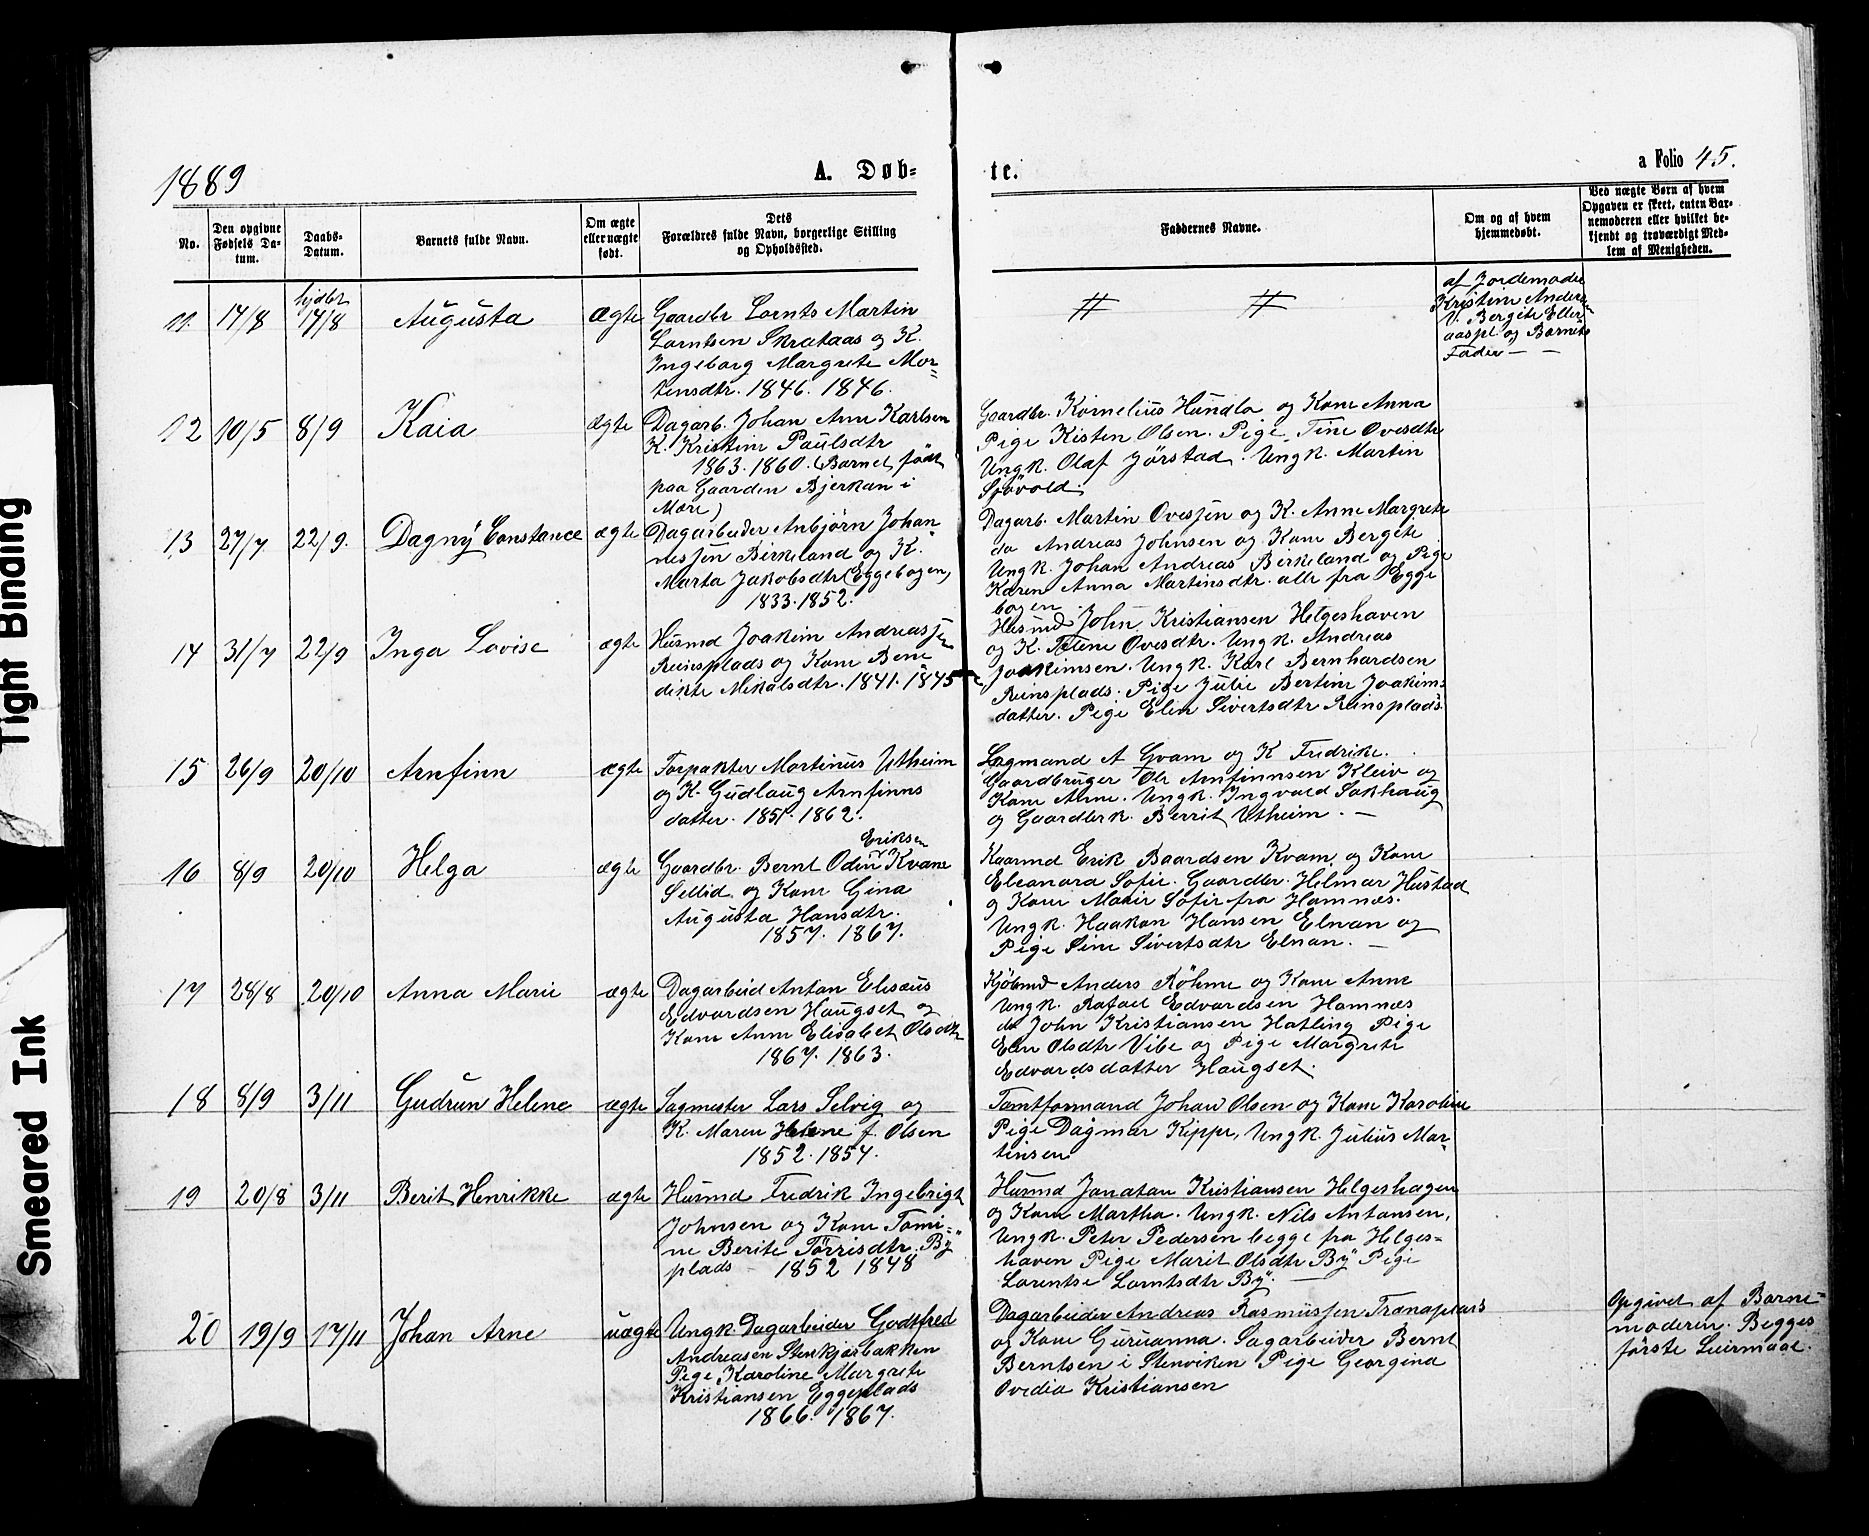 1889
A. Døb-
te.
a Folio 45.
No.
Den opgivne Fødsels Da-
tum.
Daabs-
Datum.
Barnets fulde Navn.
Om ægte
eller uægte
født.
Dets
Forældres fulde Navn, borgerlige Stilling
og Opholdssted.
Faddernes Navne.
Om og af hvem
hjemmedøbt.
Ved uægte Børn af hvem
Opgaven er skeet, enten Bar-
nemoderen eller hvilket be-
kjendt og troværdigt Med-
lem af Menigheden.
11. 17/8 hjdbt 17/8 Augusta Ægte
Gaardbr Lornts Martin
Lorntsen Skrataas og K.
Ingeborg Margrete Mor=
tensdtr. 1846. 1846.
af Jordemoder
Kristine Anders
V. Bergite Eller
aaspl. og Barnets
Fader
12 10/5 8/9 Kaia Ægte
Dagarb. Johan Arnt Karlsen
K. Kristine Paulsdtr
1863. 1860. (Barnet født
paa Gaarden Bjerkan i
Mære)
Gaardbr. Kornelius Hundlo og Kone Anna
Pige Kisten Olsen. Pige Tine Ovesdtr
Ungk. Olaf Jörstad. Ungk. Martin
Sjövold.
13 27/7 22/9. Dagny Constance ægte
Dagarbeider Anbjörn Johan
nessen Birkeland og K.
Marta Jakobsdtr (Eggebogen)
1833. 1852.
Dagarb. Martin Ovessen og K. Anne Margrete
do Andreas Johnsen og Kone Bergite
Ungk. Johan Andreas Birkeland og Pige
Karen Anna Martinsdtr. alle fra Egge
bogen
14 31/7 22/9 Inga Lovise ægte
Husmd Joakim Andreassen
Reinsplads og Kone Bene
dikte Mikalsdtr. 1841. 1845
Husmd John Kristiansen Helgeshaven
og K. Oline Ovesdtr. Ungk. Andreas
Joakimsen. Ungk. Karl Bernhardsen
Reinsplads. Pige Julie Bertine Joakims
datter. Pige Elen Sivertsdtr Reinsplads
15 26/9 20/10 Arnfinn ægte
Forpakter Martinus Utheim
og K. Gudlaug Arnfinns
datter. 1851. 1862.
Lagmand A Gvam og K Fredrike.
Gaardbruger Ole Arnfinnsen Kleiv og
Kone Anne. Ungk. Ingvald Sakhaug
og Gaardbrk. Berrit Utheim.
16 8/9 20/10 Helga ægte
Eriksen
Gaardbr. Bernt Odin Kvam
Sellid og Kone Gina
Augusta Hansdtr.
1857. 1867.
Kaarmd Erik Baardsen Kvam og Kone
Eleanora Sofie. Gaardbr. Helmar Hustad
og Kone Marie Sofie fra Hamnes.
Ungk. Haakon Hansen Elnan og
Pige Sine Sivertsdtr Elnan.
17 28/8 20/10 Anna Marie ægte
Dagarbeid Anton Eliseus
Edvardsen Haugset og
Kone Anne Elisabet Olsdtr
1867. 1863.
Kjöbmd Anders Röhme og Kone Anne
Ungk. Rafael Edvardsen Hamnæs
do John Kristiansen Hatling Pige
Elen Olsdtr Vibe og Pige Margrete
Edvardsdatter Haugset.
18 8/9 3/11 Gudrun Helene ægte
Sagmester Lars Selvig og
K. Maren Helene f. Olsen
1852. 1854.
Tomtformand Johan Olsen og Kone Karoline
Pige Dagmar Kippe, Ungk. Julius Mar-
tinsen
19 20/8 3/11 Berit Henrikke ægte
Husmd Fredrik Ingebrigt
Johnsen og Kone Tomi=
ne Berite Törrisdtr. By
plads - 1852 1848
Husmd Jonatan Kristiansen Helgeshagen
og Kone Martha. Ungk. Nils Antonsen,
Ungk. Peter Pedersen begge fra Helges=
haven Pige Marit Olsdtr By Pige
Lorentse Lorntsdtr By.
20 19/9 17/11 Johan Arne uægte
Ungk. Dagarbeider Godtfred
Andreasen Stenkjærbakken
Pige Karoline Margrete
Kristiansen Eggeplads
1866. 1867.
Dagarbeider Andreas Rasmussen Tranaplads
og Kone Gurianna. Sagarbeider Bernt
Berntsen i Stenviken Pige Georgina
Ovedia Kristiansen
Opgivet af Barne=
moderen. Begges
förste Leiermaal.
Tight Binding
Smeared Ink